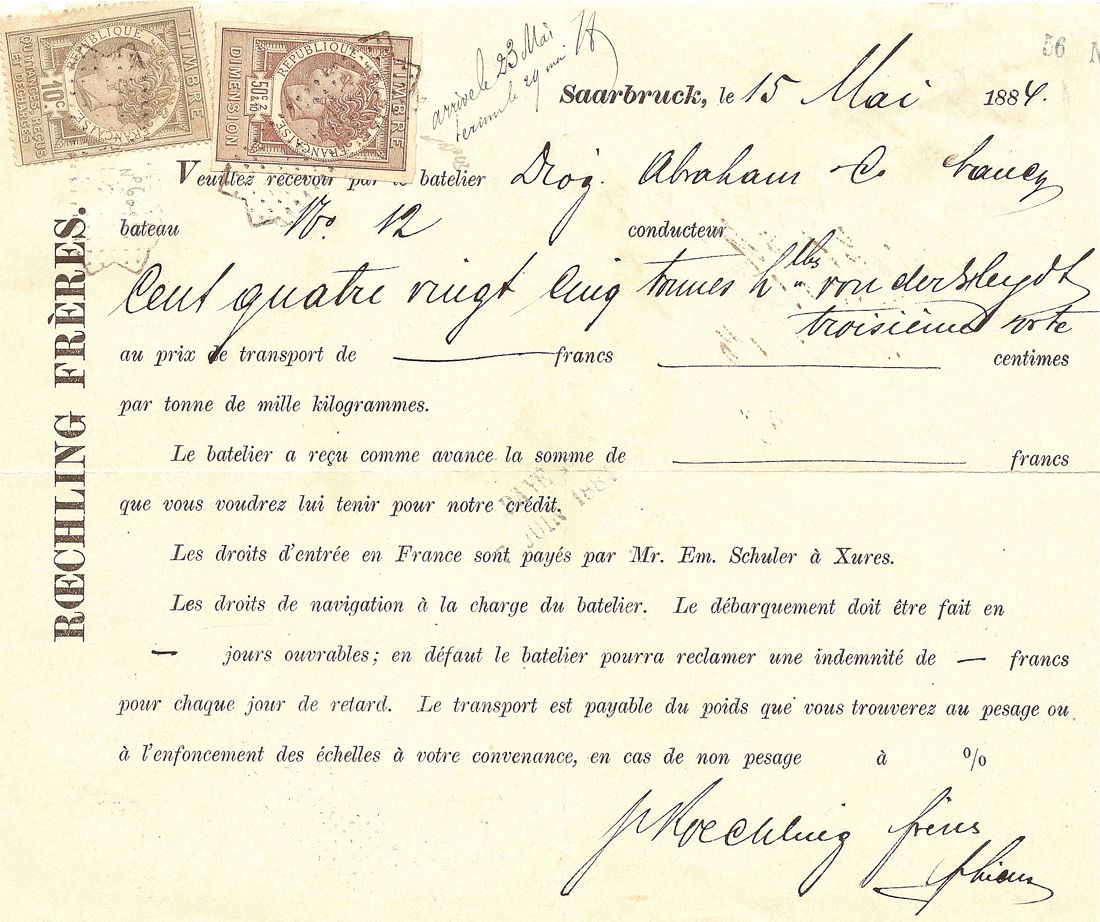 TIMBRE
RÉPUBLIQUE
FRANÇAISE
10c.
QUITTANCES, REÇUS
ET DÉCHARGES
TIMBRE
RÉPUBLIQUE
FRANÇAISE
50c 2/10
DIMENSION
arrivé le 23 Mai
terminé le 29 mai
56 N
Saarbruck, le 15 Mai 1884.
Veuillez recevoir par le batelier Drog. Abraham
bateau No. 12 conducteur
Cent quatre vingt cinq tonnes hlles von der Heydt
troisième sorte
au prix de transport de — francs — centimes
par tonne de mille kilogrammes.
Le batelier a reçu comme avance la somme de — francs
que vous voudrez lui tenir pour notre crédit.
PAYÉ
JUIN 1884
Les droits d'entrée en France sont payés par Mr. Em. Schuler à Xures.
Les droits de navigation à la charge du batelier. Le débarquement doit être fait en
— jours ouvrables; en défaut le batelier pourra reclamer une indemnité de — francs
pour chaque jour de retard. Le transport est payable du poids que vous trouverez au pesage ou
à l'enfoncement des échelles à votre convenance, en cas de non pesage à %
p Roechling frères
RŒCHLING FRÈRES.